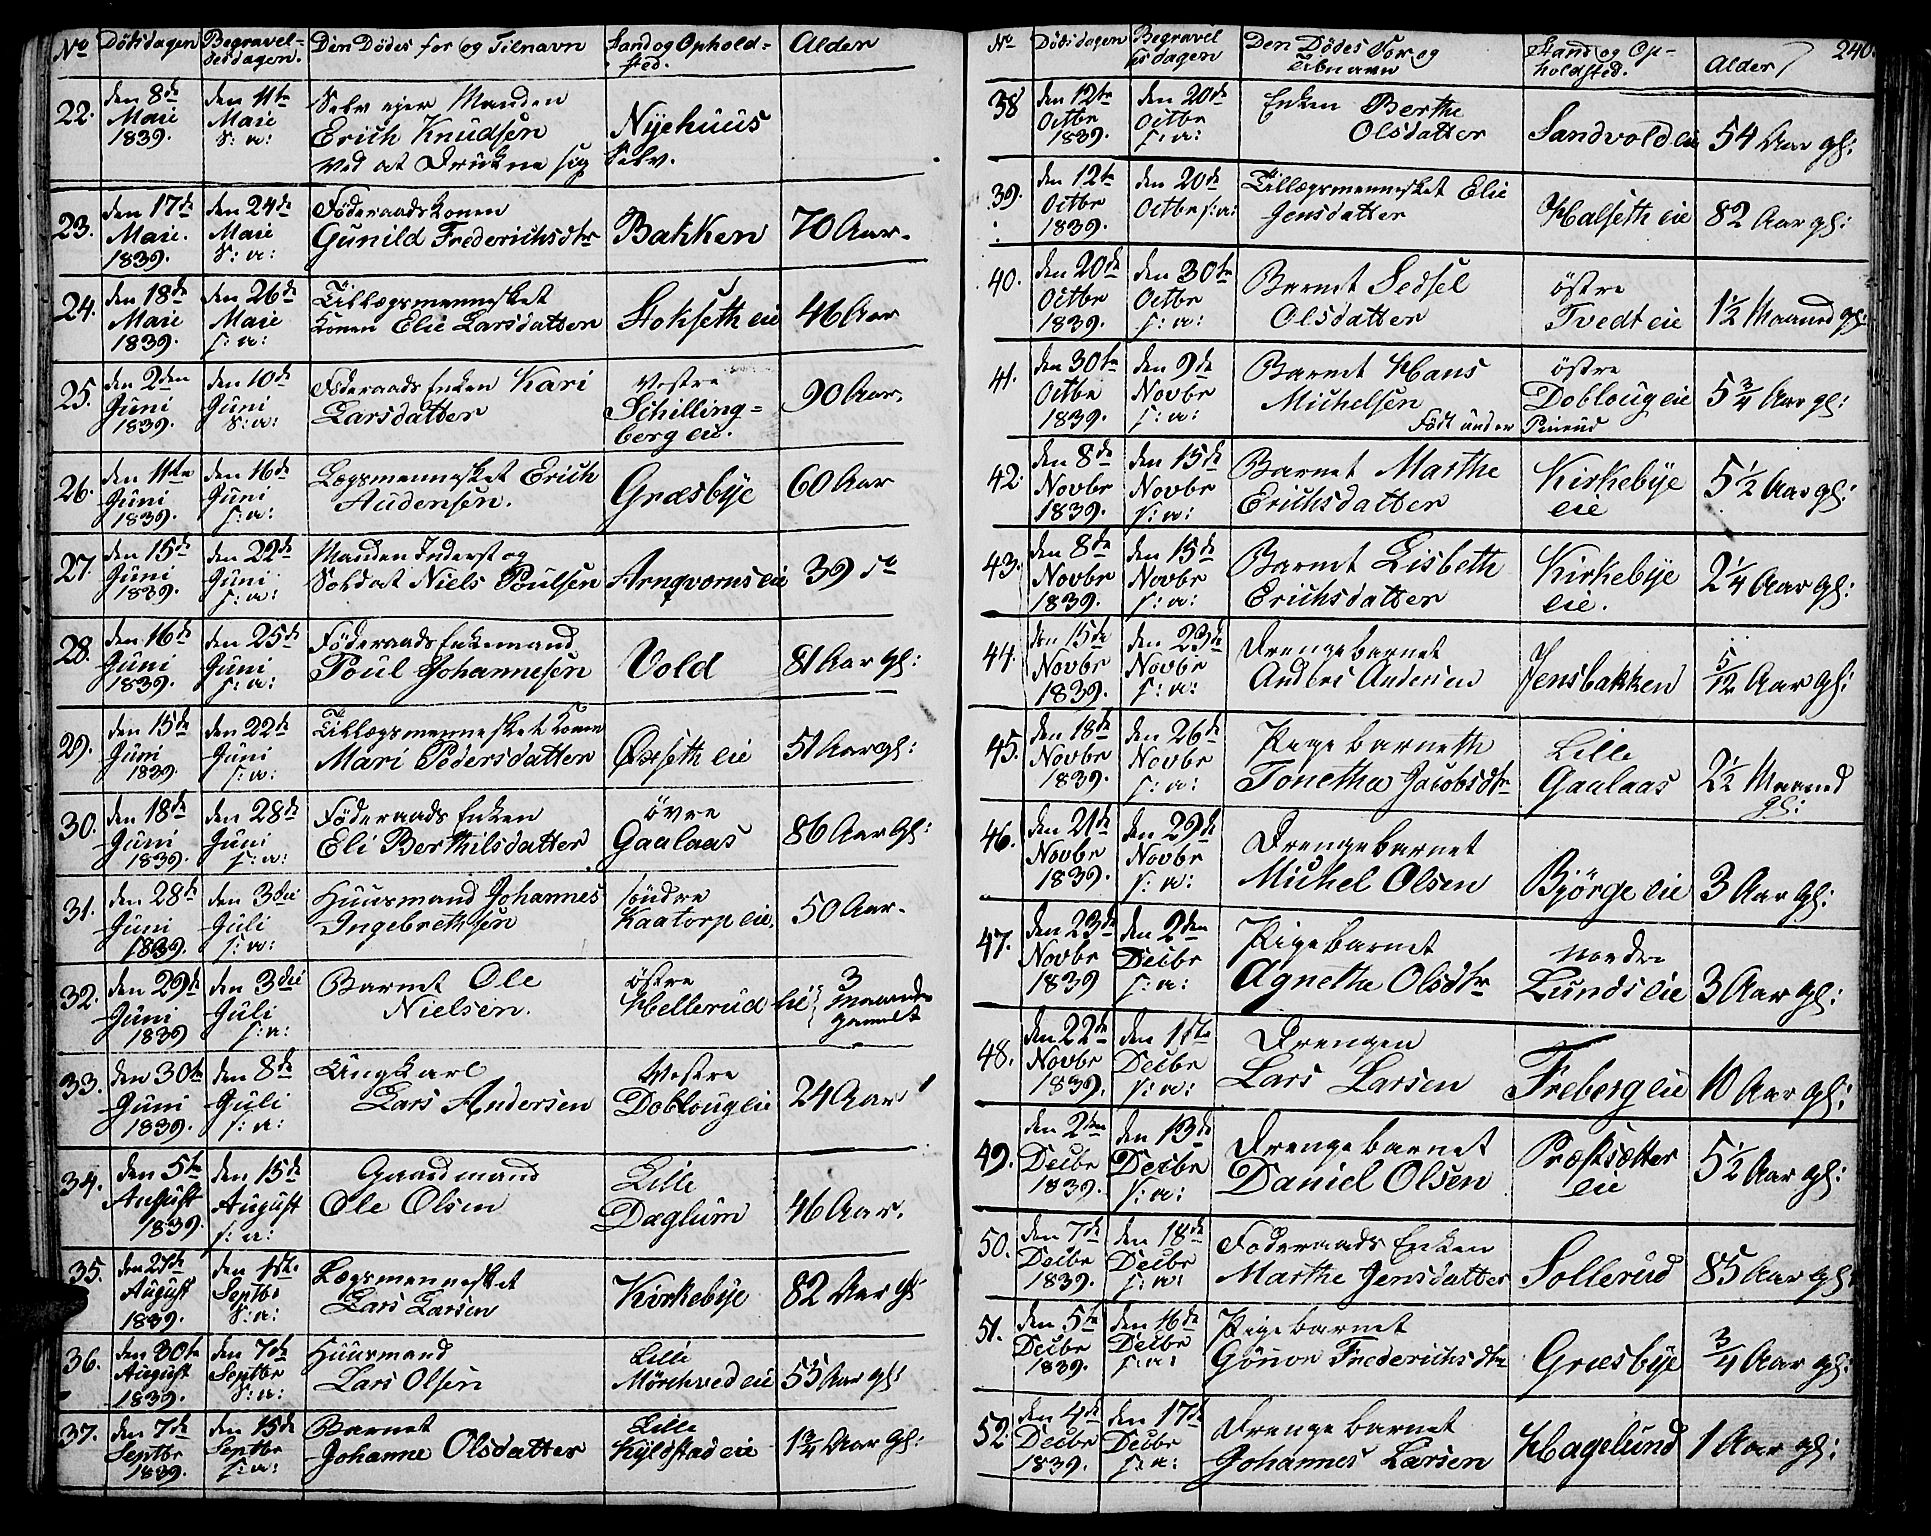 No Dödsdagen Begravel= Den Dödes for og Tilnavn Stand og Ophold= Alder
sesdagen. sted.
22. den 8de den 11te Selv ejer Manden
Maii Maii Erich Knudsen Nyehuus
1839. S: a: ved at Drukne sig Selv.
23. den 17de den 24de Föderaadskonen
Maii. Maii Gunild Frederichsdtr Bakken 70 Aar.
1839. S: a:
24. den 18de den 26de Tillægsmennesket
Maii Maii Konen Elie Larsdatter Stokseth eie 46 Aar
1839. s: a:
25. den 2den den 10de Föderaads Enken Kari Vestre
Juni Juni Larsdatter Schilling= 90 Aar.
1839. S: a: berg eie.
26. den 11te den 16de Lægsmennesket Erich
Juni Juni Audensen. Græsbye 60 Aar
1839. s: a:
27. den 15de den 22de Manden Inderst og
Juni Juni Soldat Niels Poulsen Arnqværns eie 39 do
1839. s: a:
28. den 16de den 25de Föderaads Enkemand
Juni Juni Poul Johannesen Vold 81 Aar gl:
1839. s: a:
29. den 15de den 22de Tillægsmennesket Konen
Juni Juni Mari Pedersdatter Öxseth eie 51 Aar gl:
1839. s: a:
30. den 18de den 28de Föderaads Enken övre
Juni Juni Eli Berthilsdatter Gaalaas 86 Aar gl:
1839. s: a:
31. den 28de den 3die Huusmand Johannes söndre
Juni Juli Ingebrethsen Kaatorp eie, 50 Aar.
1839. s: a:
32. den 29de den 3die Barnet Ole östre 3
Juni Juli Nielsen. Hellerud eie Maaneder
1839 s: a: gammelt
33. den 30te den 8de Ungkarl Vestre
Juni Juli Lars Andersen Dobloug eie 24 Aar
1839. s: a:
34. den 5te den 15de Gaardmand Lille
August August Ole Olsen Dæglum 46 Aar.
1839. s: a:
35. den 27de den 1ste Lægsmennesket
August Septbr Lars Larsen Kirkebye 82 Aar gl
1839. S: a:
36. den 30te den 7de Huusmand Lille
August Septbr Lars Olsen Mörchved eie 55 Aar gl:
1839. S: a:
37. den 7de den 15de Barnet Lille
Septbr Septbr Johanne Olsdatter Kyldstad eie 1 3/4 Aar gl:
1839. s: a:
No Dödsdagen Begravel Den Dödes For og Stand og Op= Alder 240.
sesdagen Tilnavn holdsted.
38 den 12te den 20de Enken Berthe
Octbr Octbr Olsdatter Sandvold eie 54 Aar gl:
1839. s: a:
39. den 12te den 20de Tillægsmennesket Elie
Octbr Octbr s: a: Jensdatter Halseth eie 82 Aar gl:
1839.
40. den 20de den 30te Barnet Sedsel östre
Octbr Octbr Olsdatter Tvedt eie 1 1/2 Maaned gl:
1839. s: a:
41. den 30te den 9de Barnet Hans östre
Octbr Novbr Michelsen Dobloug eie 5 3/4 Aar gl:
1839. s: a: Födt under
42. den 8de den 15de Barnet Marthe Kirkebye
Novbr Novbr Erichsdatter eie 5 1/2 Aar gl:
1839. s: a:
43. den 8de den 15de Barnet Lisbeth Kirkebye
Novbr Novbr Erichsdatter eie. 2 1/4 Aar gl:
1839. s: a:
44. den 15de den 23de Drengebarnet
Novbr Novbr Anders Andersen Jensbakken 5/12 Aar gl:
1839. s: a:
45. den 18de den 26de Pigebarneth Lille
Novbr Novbr Tonetha Jacobsdtr Gaalaas 2 1/2 Maaned
1839. s: a: gl:
46. den 21de den 29de Drengebarnet
Novbr Novbr Michel Olsen Björge eie 3 Aar gl:
1839. s: a:
47. den 23de den 2den Pigebarnet nordre
Novbr Decbr Agnetha Olsdtr Lunds eie 3 Aar gl:
1839 s: a:
48. den 22de den 1ste Drengen
Novbr Decbr Lars Larsen Freberg eie 10 Aar gl:
1839. s: a:
49. den 2den den 13de Drengebarnet Præstsætter
Decbr Decbr Daniel Olsen eie 5 1/2 Aar gl:
1839. s: a:
50. den 7de den 18de Föderaads Enken
Decbr Decbr Marthe Jensdatter Sollerud 85 Aar gl:
1839. s: a:
51. den 5te den 16de Pigebarnet
Decbr Decbr Gönnor Frederichsdtr Græsbye 3/4 Aar gl:
1839. s: a:
52. den 4de den 17de Drengebarnet
Decbr Decbr Johannes Larsen Hagelund 1 Aar gl:
1839. s: a: